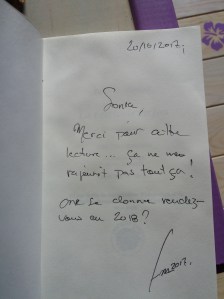 20/10/2017,
Sonia,
Merci pour cette
lecture... ça ne me
rajeunit pas tout ça !
On se donne rendez-
vous en 2018 ?